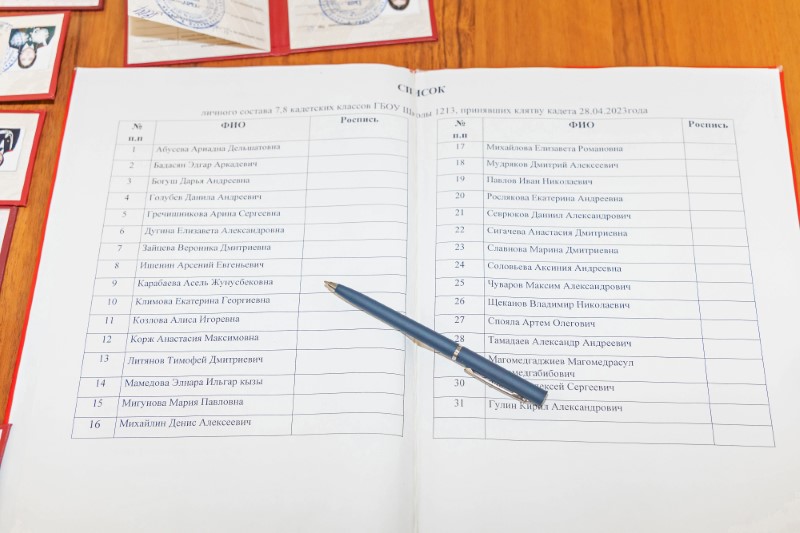 СПИСОК
личного состава 7,8 кадетских классов ГБОУ Школы 1213, принявших клятву кадета 28.04.2023года
№ п.п ФИО Роспись
1 Абусева Ариадна Дельшатовна
2 Бадасян Эдгар Аркадевич
3 Богуш Дарья Андреевна
4 Голубев Данила Андреевич
5 Гречишникова Арина Сергеевна
6 Дугина Елизавета Александровна
7 Зайцева Вероника Дмитриевна
8 Ишенин Арсений Евгеньевич
9 Карабаева Асель Жунусбековна
10 Климова Екатерина Георгиевна
11 Козлова Алиса Игоревна
12 Корж Анастасия Максимовна
13 Литянов Тимофей Дмитриевич
14 Мамедова Элнара Ильгар кызы
15 Мигунова Мария Павловна
16 Михайлин Денис Алексеевич
№ п.п ФИО Роспись
17 Михайлова Елизавета Романовна
18 Мудряков Дмитрий Алексеевич
19 Павлов Иван Николаевич
20 Рослякова Екатерина Андреевна
21 Севрюков Даниил Александрович
22 Сигачева Анастасия Дмитриевна
23 Славнова Марина Дмитриевна
24 Соловьева Аксиния Андреевна
25 Чуваров Максим Александрович
26 Щеканов Владимир Николаевич
27 Спояла Артем Олегович
28 Тамадаев Александр Андреевич
Магомедгаджиев Магомедрасул
30 Сергеевич
31 Гулин Кирил Александрович